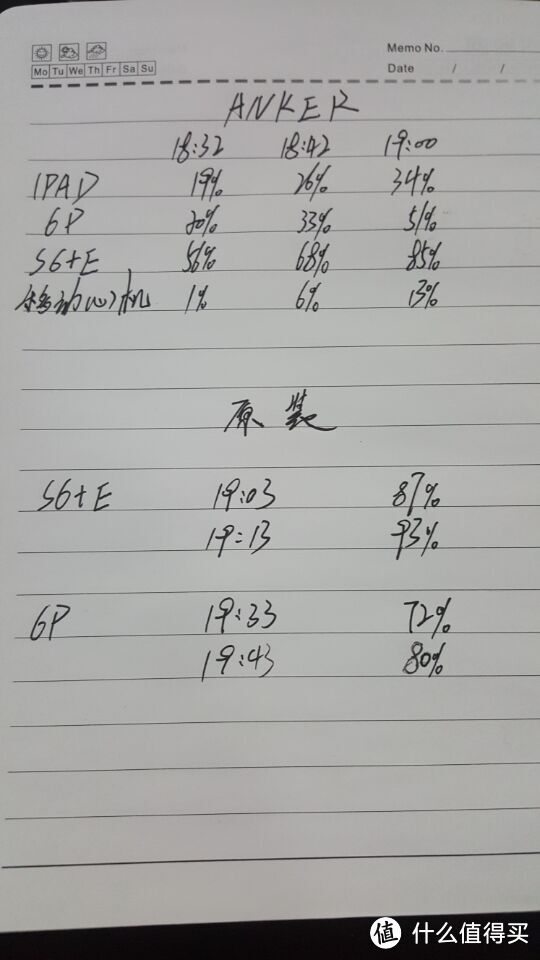 Memo No.
Mo Tu We Th Fr Sa Su
Date / /
ANKER
18:32 18:42 19:00
IPAD 19% 26% 34%
6P 20% 33% 51%
S6+E 56% 68% 85%
移动心机 1% 6% 13%
原装
S6+E 19:03 87%
19:13 93%
6P 19:33 72%
19:43 80%
值 什么值得买